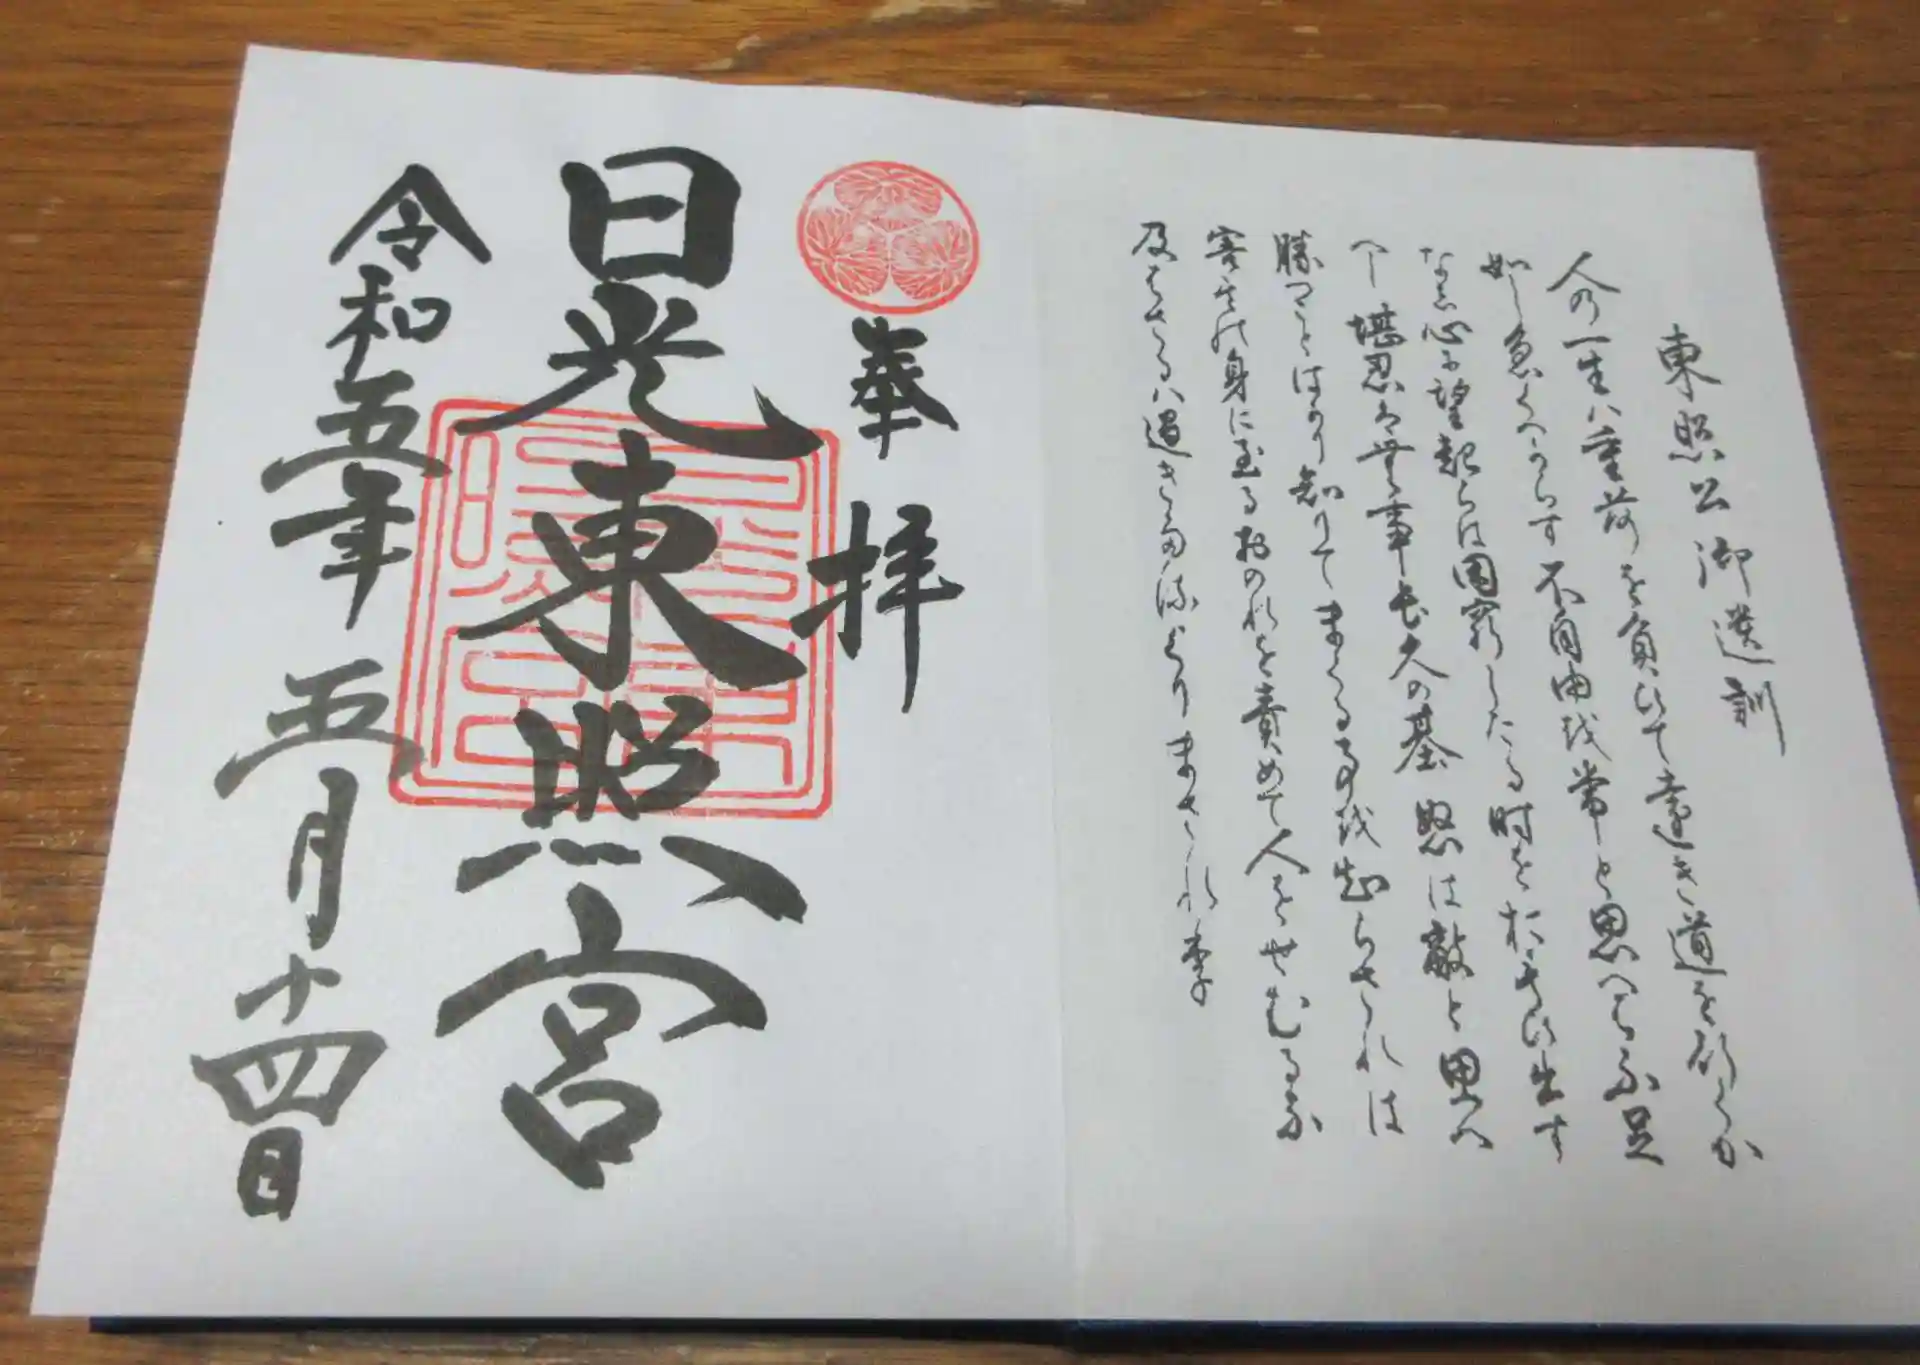 東照公御遺訓
人の一生ハ重荷を負ひて遠き道を行くか
如し急くへからす不自由越常と思へは不足
なし心に望起らは困窮したる時を於もひ出す
へし堪忍は無事長久の基怒は敵と思へ
勝つことはかり知りてまくる事越知らされは
害其の身に至るおのれを責めて人をせむるな
及はさるハ過きたるよりまされり
奉拝
日光東照宮
令和五年五月十四日